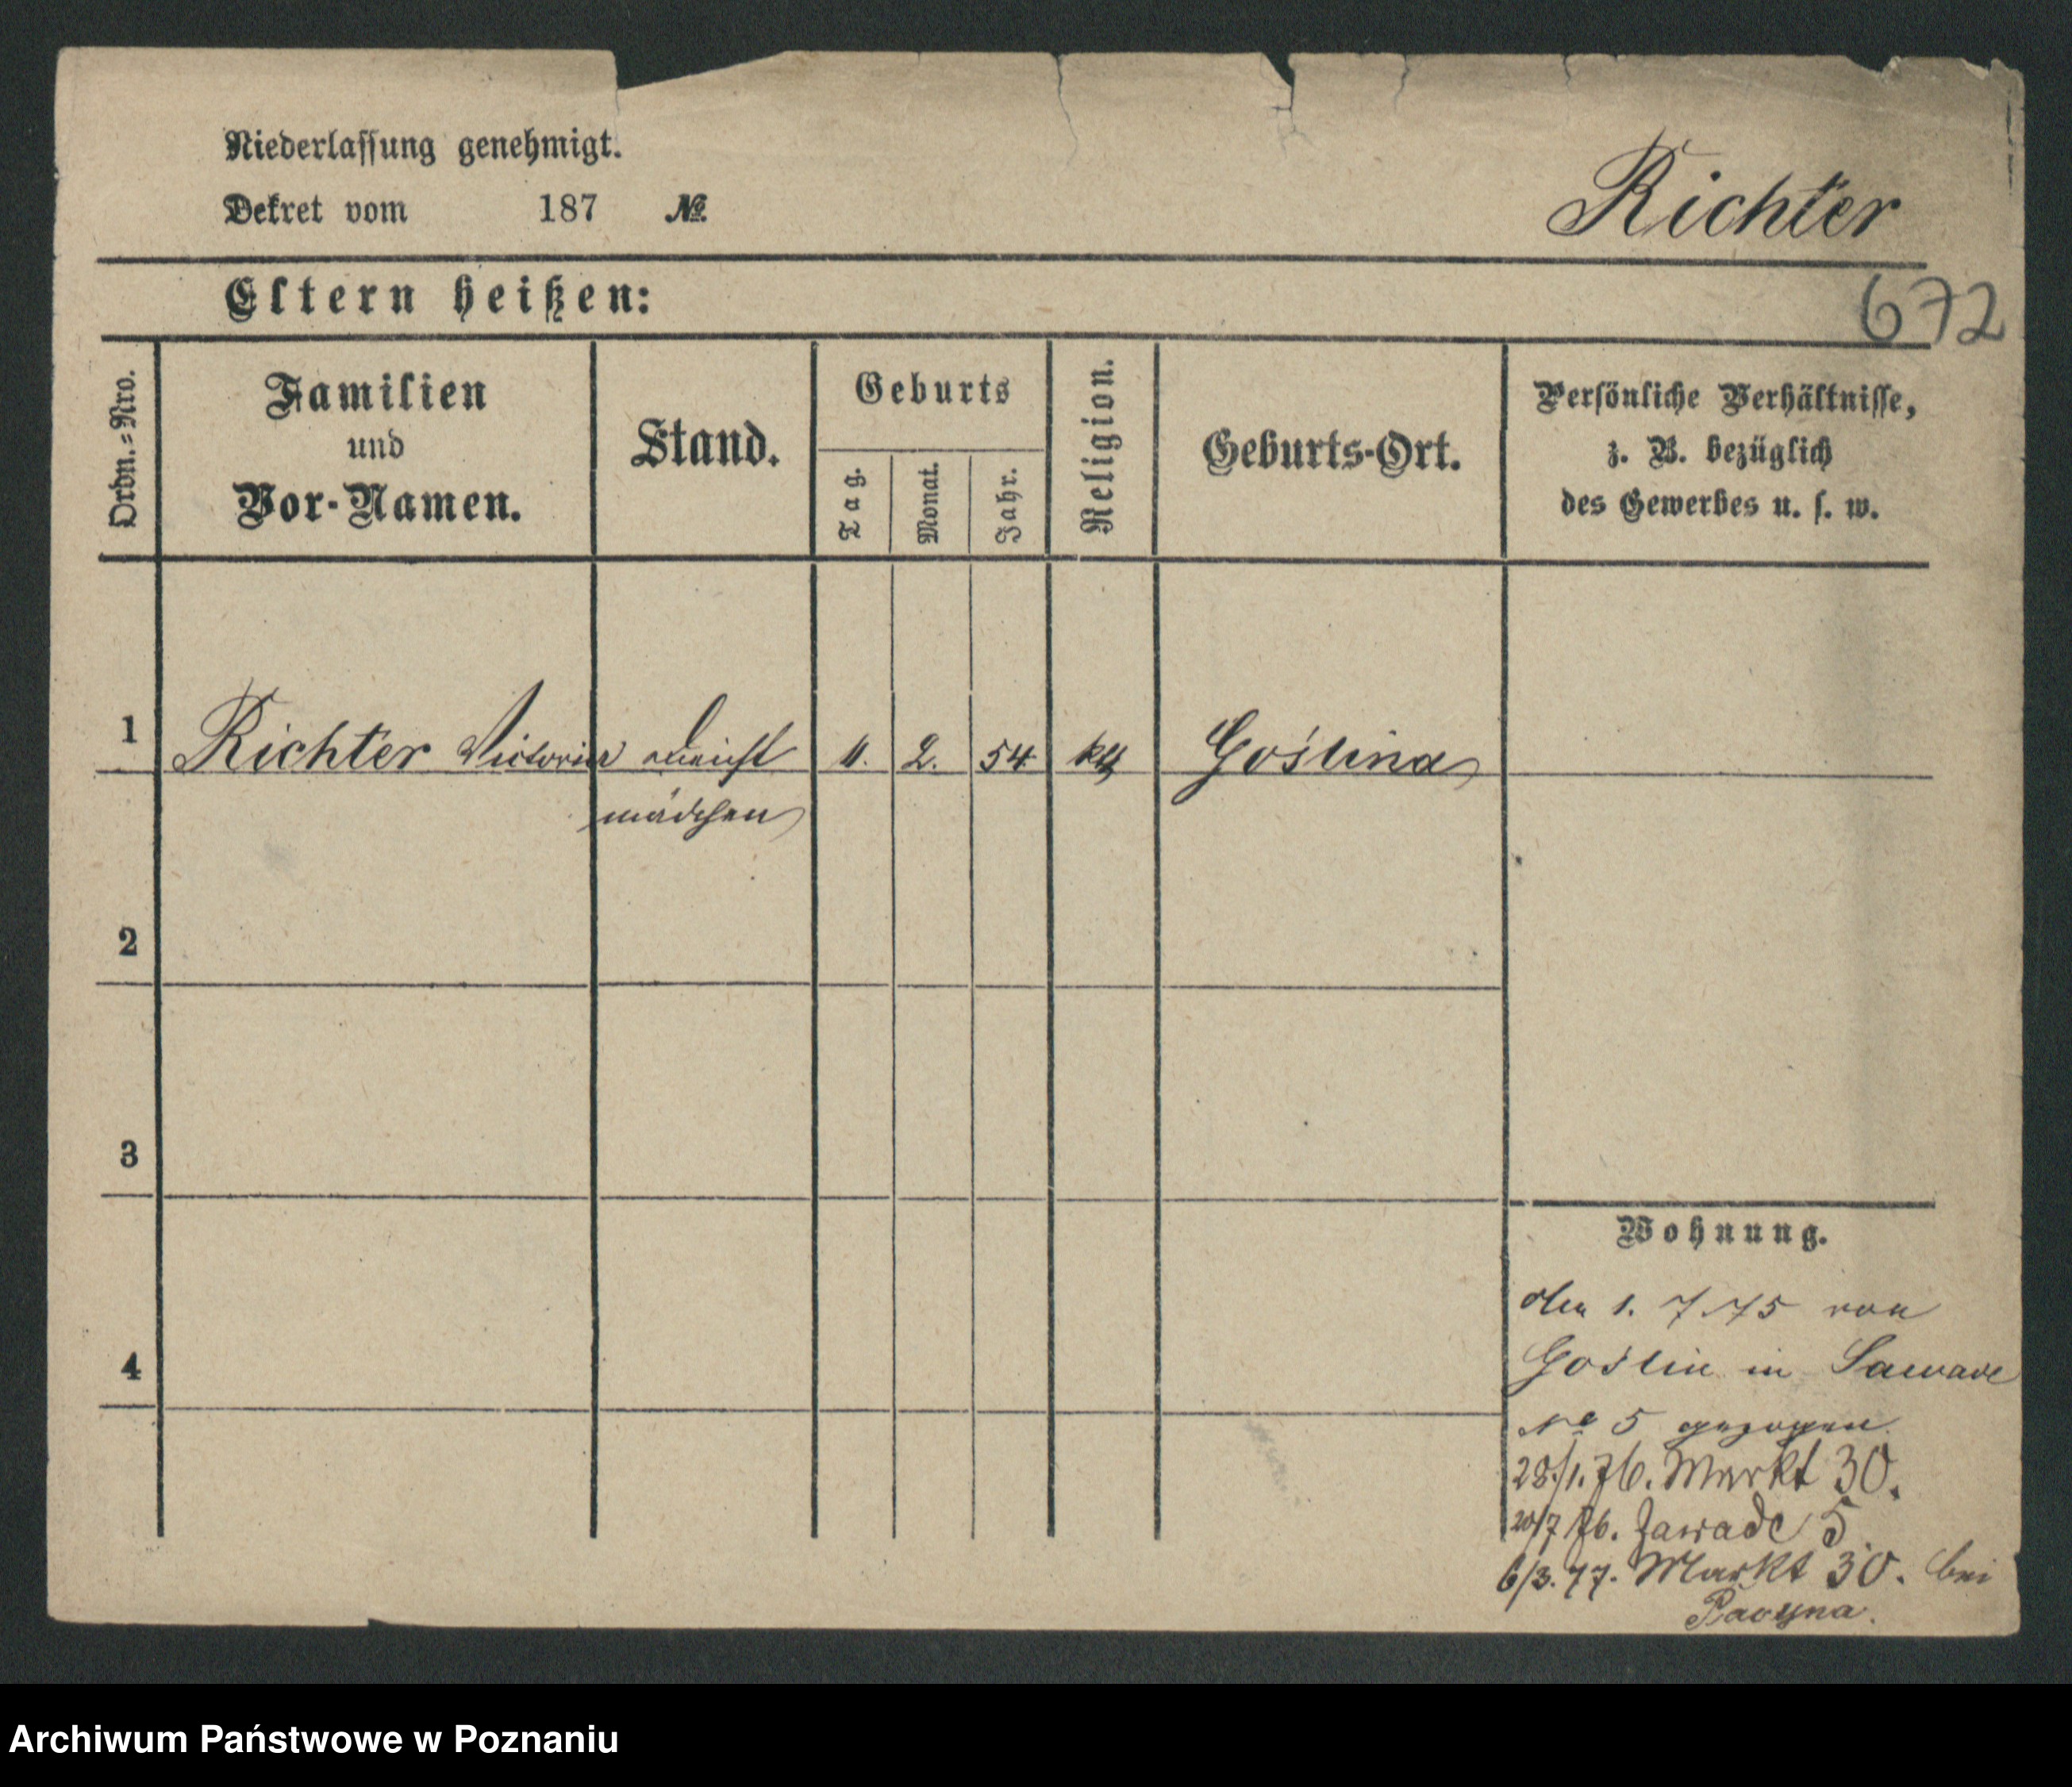 Niederlassung genehmigt.
Dekret vom 187 №
Richter
Eltern heißen:
672
Ordn.=Nro.
Familien
und
Vor-Namen.
Stand.
Geburts
Tag.
Monat.
Jahr.
Religion.
Geburts-Ort.
Persönliche Verhältnisse,
z. B. bezüglich
des Gewerbes u. s. w.
1 Richter Victoria Dienst 11. 2. 54 kth Goślina
mädchen
2
3
4
Wohnung.
den 1. 7. 75 von
Goślin in Sawade
No 5 gezogen
28/1. 76. Markt 30.
20/7 76. Zawade 5
6/3. 77. Markt 30. bei
Archiwum Państwowe w Poznaniu